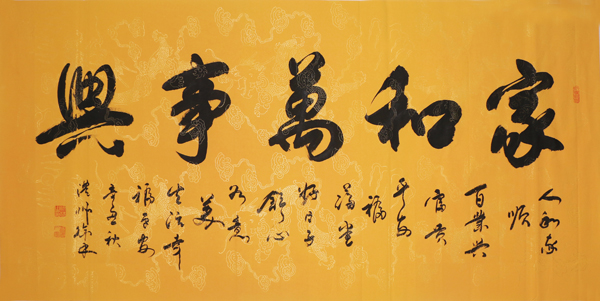 家和萬事興
人和家
順
百業興
富貴
平安
福
滿堂
好日子
舒心
如意
美
生活幸
福安
辛丑秋